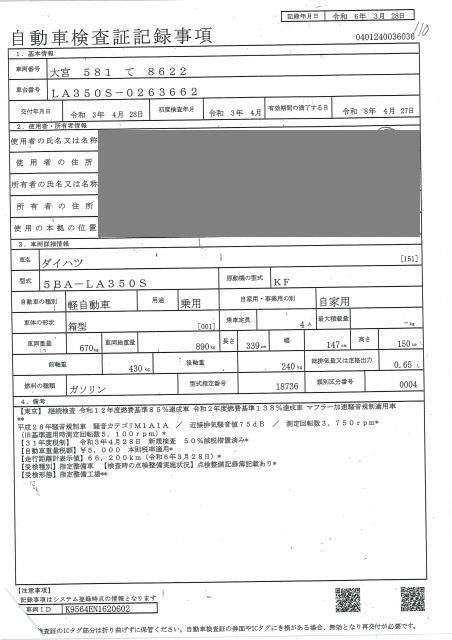 記録年月日 令和 6年 3月 28日
110
自動車検査証記録事項
0401240036036
1. 基本情報
車両番号 大宮 581 て 8622
車台番号 LA350S-0263662
交付年月日 令和 3年 4月 28日 初度検査年月 令和 3年 4月 有効期間の満了する日 令和 8年 4月 27日
2. 使用者・所有者情報
使用者の氏名又は名称
使用者の住所
所有者の氏名又は名称
所有者の住所
使用の本拠の位置
3. 車両詳細情報
車名 ダイハツ [151]
型式 5BA-LA350S 原動機の型式 KF
自動車の種別 軽自動車 用途 乗用 自家用・事業用の別 自家用
車体の形状 箱型 [001] 乗車定員 4人 最大積載量 -kg
車両重量 670kg 車両総重量 890kg 長さ 339cm 幅 147cm 高さ 150cm
前軸重 430kg 後軸重 240kg 総排気量又は定格出力 0.65 L
燃料の種類 ガソリン 型式指定番号 18736 類別区分番号 0004
4. 備考
【東京】 継続検査 令和12年度燃費基準85%達成車 令和2年度燃費基準138%達成車 マフラー加速騒音規制適用車
**
平成28年騒音規制車 騒音カテゴリM1A1A / 近接排気騒音値75dB / 測定回転数3,750rpm*
(旧基準適用時測定回転数5,100rpm)*
【31年度税制】 令和3年4月28日 新規検査 50%減税措置済み*
【自動車重量税額】¥5,000 本則税率適用*
【走行距離計表示値】66,200km(令和6年3月28日)*
【受検種別】指定整備車 【検査時の点検整備実施状況】点検整備記録簿記載あり*
【受検形態】指定整備工場*
【注意事項】
記録事項はシステム登録時点の情報となります
車両ID K9564EN1620602
検査証のICタグ部分は折り曲げずに保管ください。自動車検査証の券面やICタグにき損がある場合、無効となり再交付が必要です。